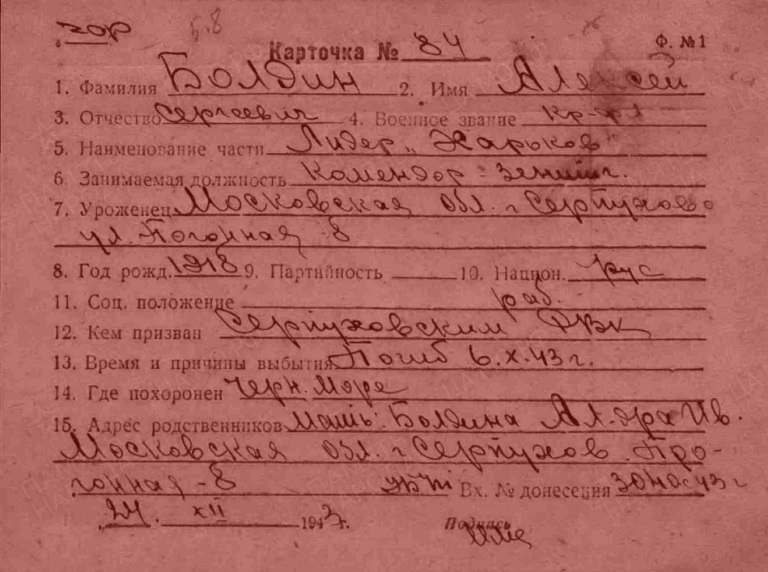 Карточка № 84 Ф. №1
1. Фамилия Болдин 2. Имя Алексей
3. Отчество Сергеевич 4. Военное звание кр-ф
5. Наименование части Лидер „Харьков
6. Занимаемая должность Комендор-зенитч.
7. Уроженец Московская обл. г Серпухово
ул. Погонная 8
8. Год рожд. 1918 9. Партийность 10. Национ. рус
11. Соц. положение раб.
12. Кем призван Серпуховским ФВК
13. Время и причины выбытия Погиб 6.X.43 г.
14. Где похоронен Черн. Море
15. Адрес родственников мать: Болдина Ал-дра Ив.
Московская обл. г Серпухов Про-
гонная-8 Вх. № донесения 43 г
24. XII 1943 г. Подпись